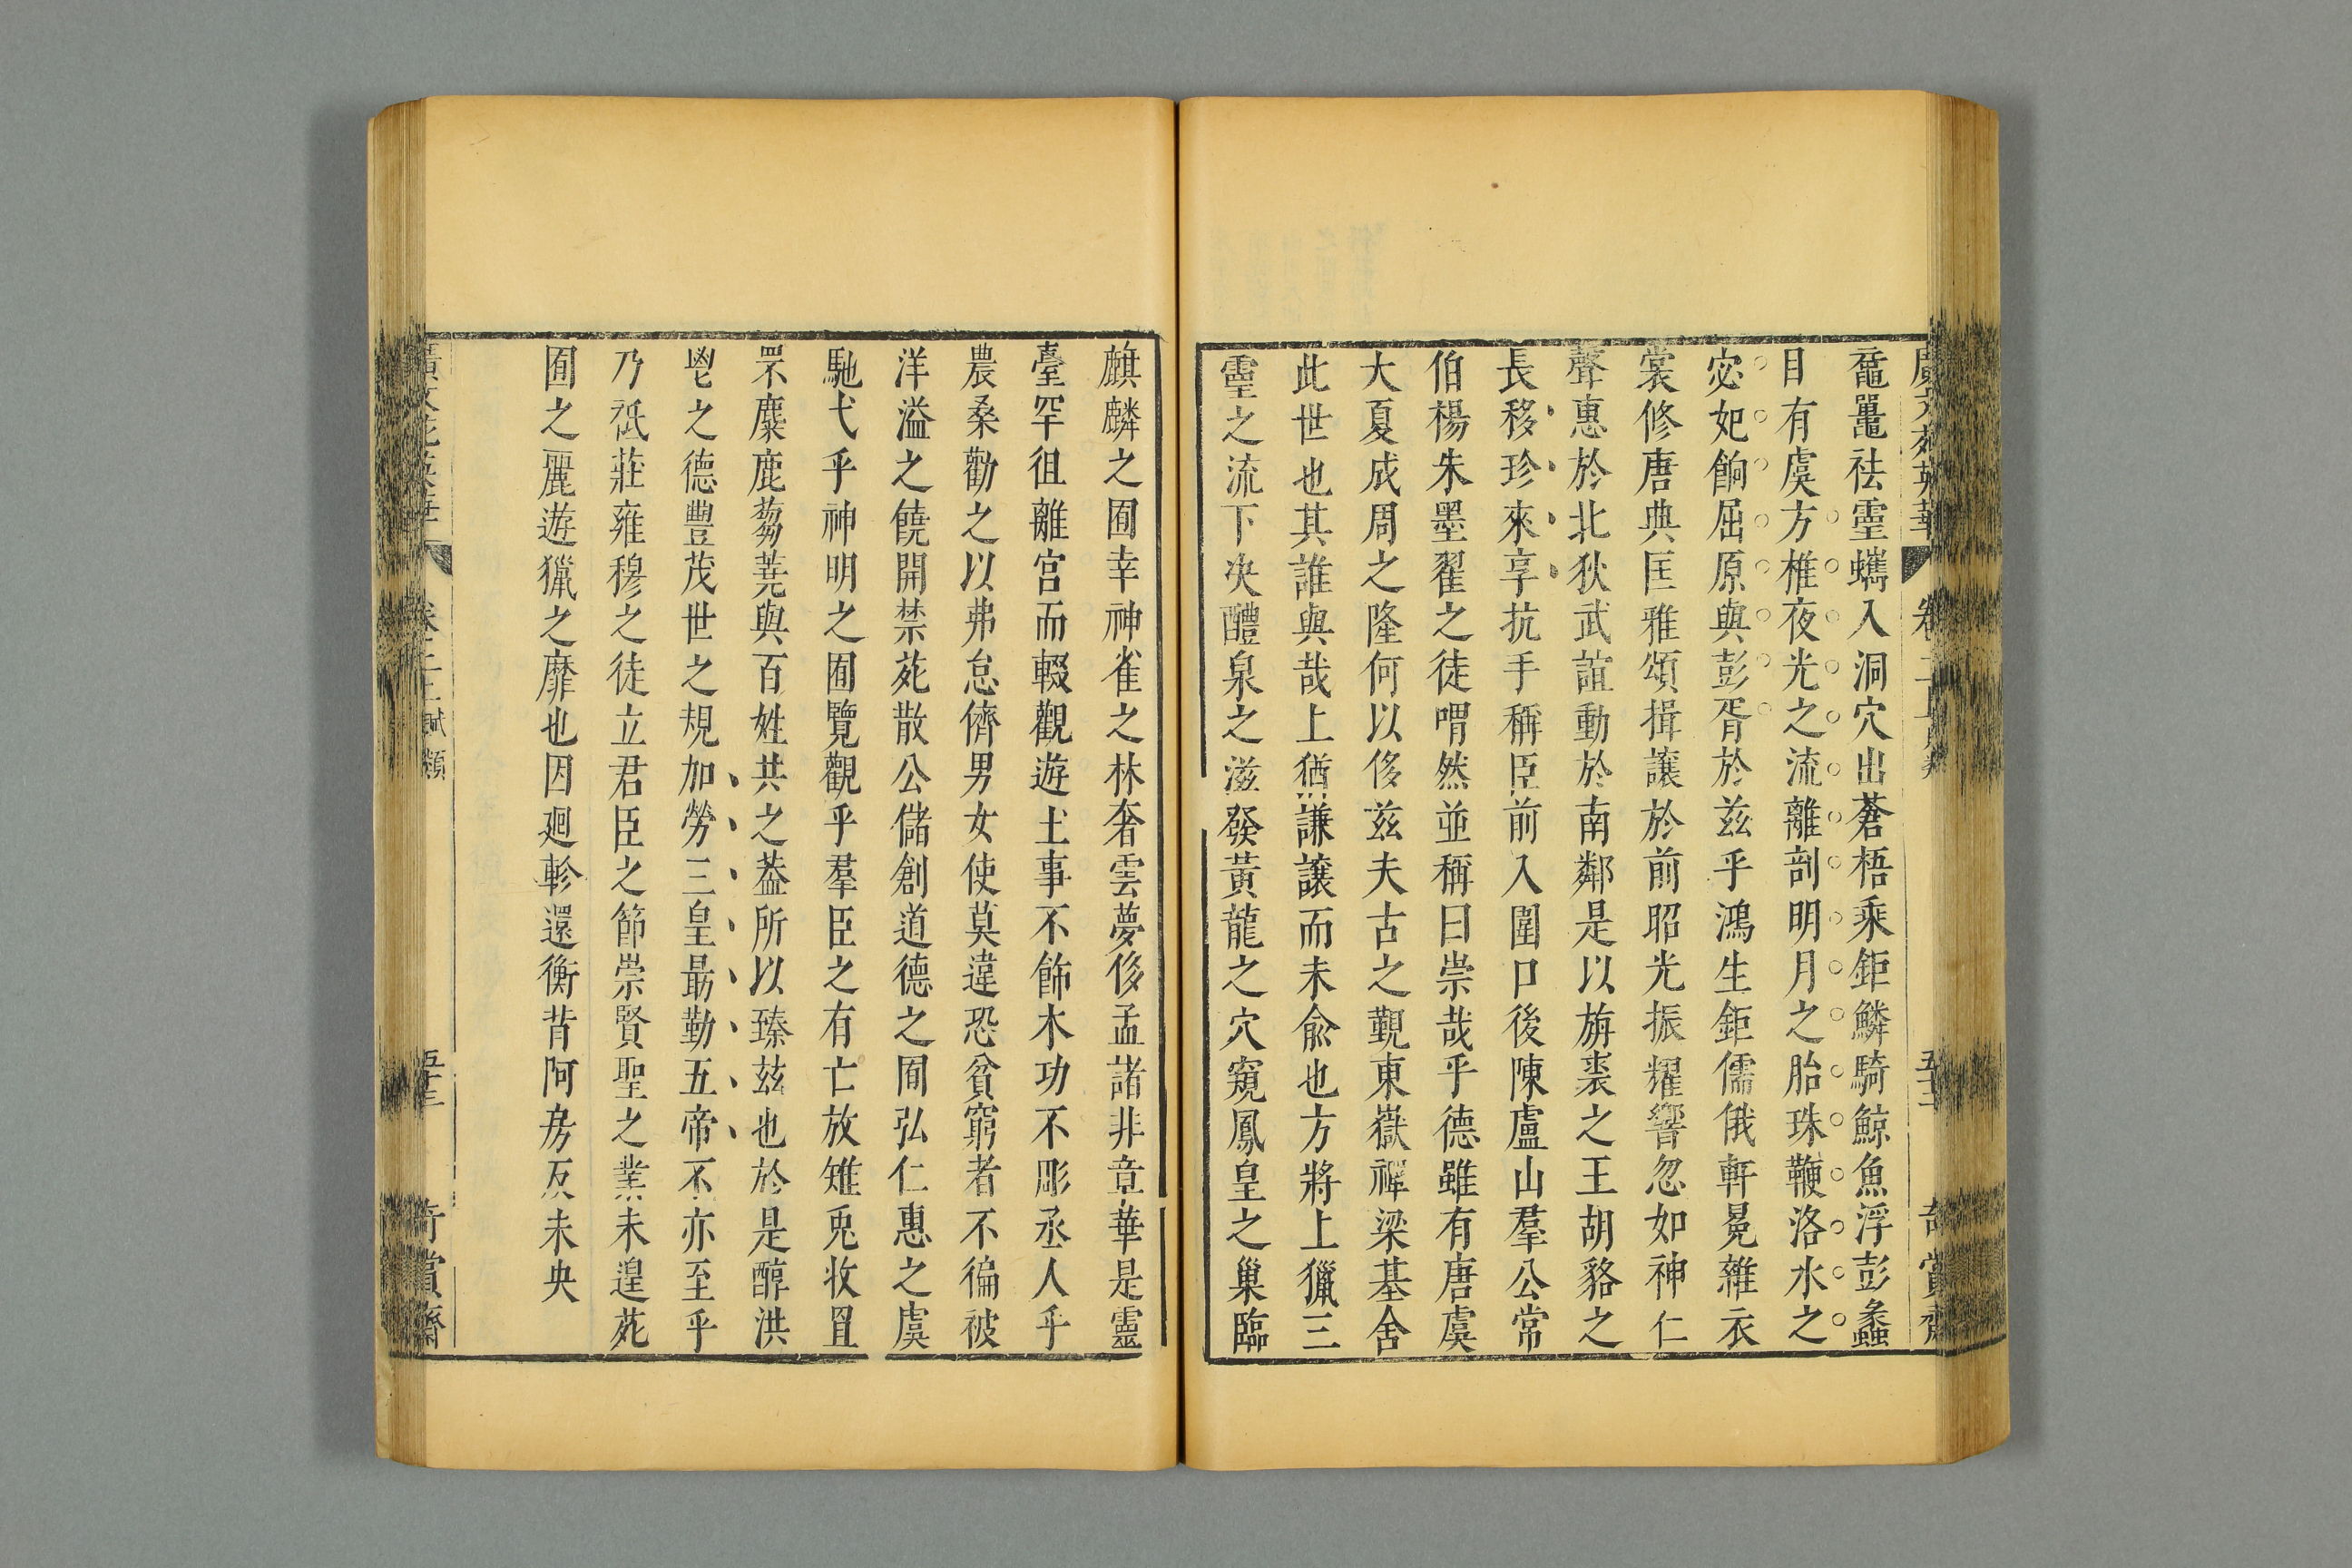 黿鼉祛靈蠵入洞穴出蒼梧乘鉅鱗騎鯨魚浮彭蠡
目有虞方椎夜光之流離剖明月之胎珠鞭洛水之
宓妃餉屈原與彭胥於茲乎鴻生鉅儒俄軒冕雜衣
裳修唐典匡雅頌揖讓於前昭光振耀響忽如神仁
聲惠於北狄武誼動於南鄰是以旃裘之王胡貉之
長移珍來享抗手稱臣前入圍口後陳盧山羣公常
伯楊朱墨翟之徒喟然並稱曰崇哉乎德雖有唐虞
大夏成周之隆何以侈茲夫古之覲東嶽禪梁基舍
此世也其誰與哉上猶謙讓而未俞也方將上獵三
靈之流下決醴泉之滋發黃龍之穴窺鳳皇之巢臨
麒麟之囿幸神雀之林奢雲夢侈孟諸非章華是靈
臺罕徂離宮而輟觀遊土事不飾木功不彫丞人乎
農桑勸之以弗怠儕男女使莫違恐貧窮者不徧被
洋溢之饒開禁苑散公儲創道德之囿弘仁惠之虞
馳弋乎神明之囿覽觀乎羣臣之有亡放雉兎收罝
罘麋鹿芻蕘與百姓共之葢所以臻玆也於是醇洪
鬯之德豐茂世之規加勞三皇最勤五帝不亦至乎
乃祗莊雍穆之徒立君臣之節崇賢聖之業未遑苑
囿之麗遊獵之靡也因廻軫還衡背阿房反未央
廣文苑英華 卷二十上賦類 五十三 奇賞齋